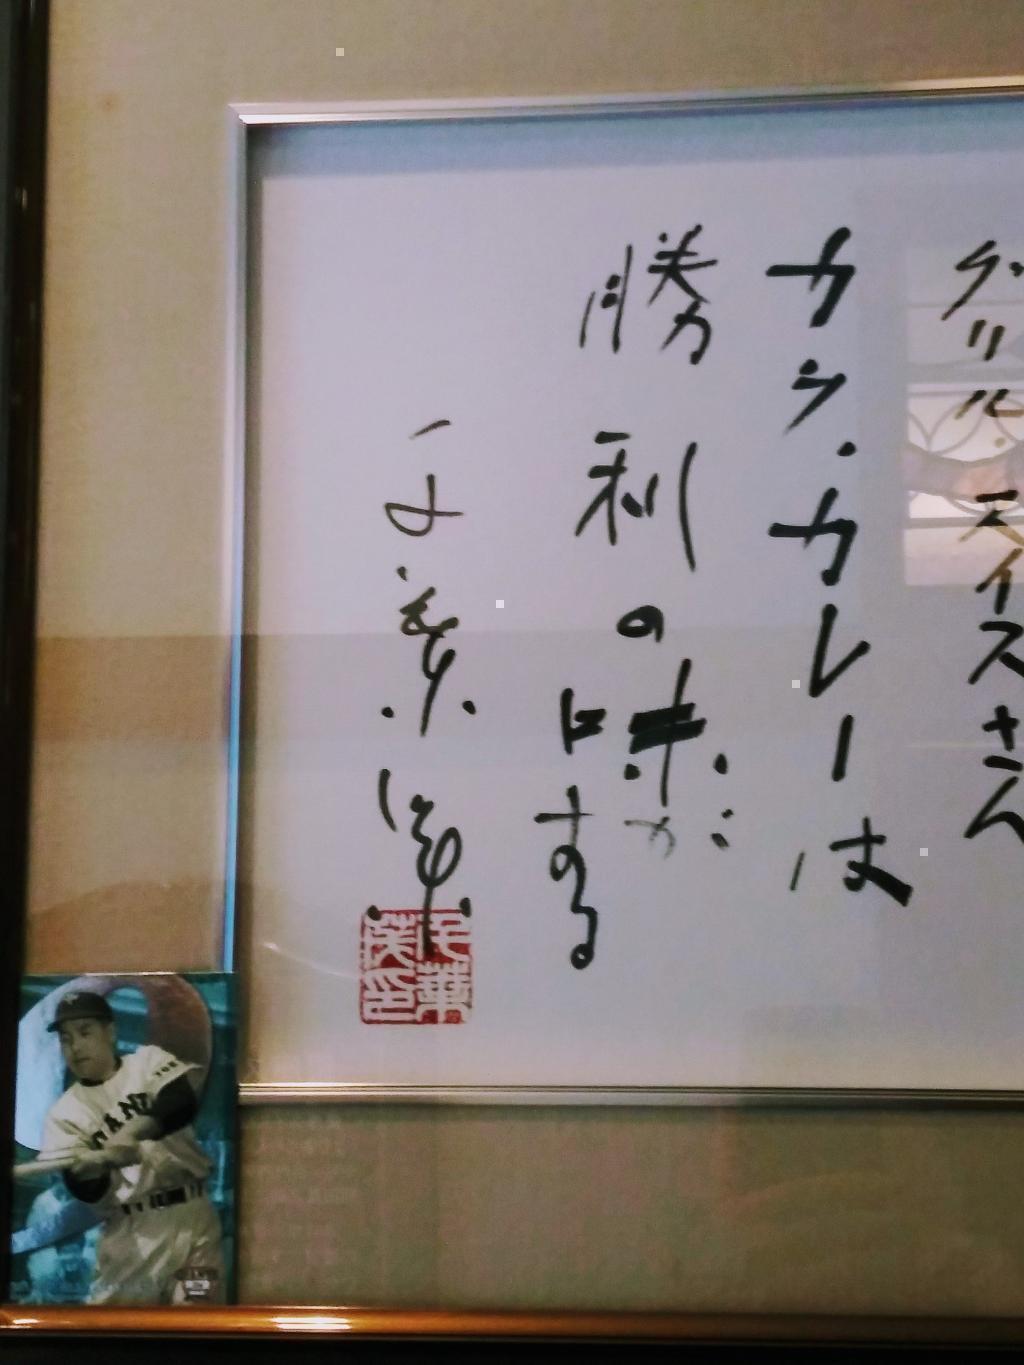 グリル・スイスさん
カツ・カレーは
勝利の味が
する
千葉茂
GIANTS